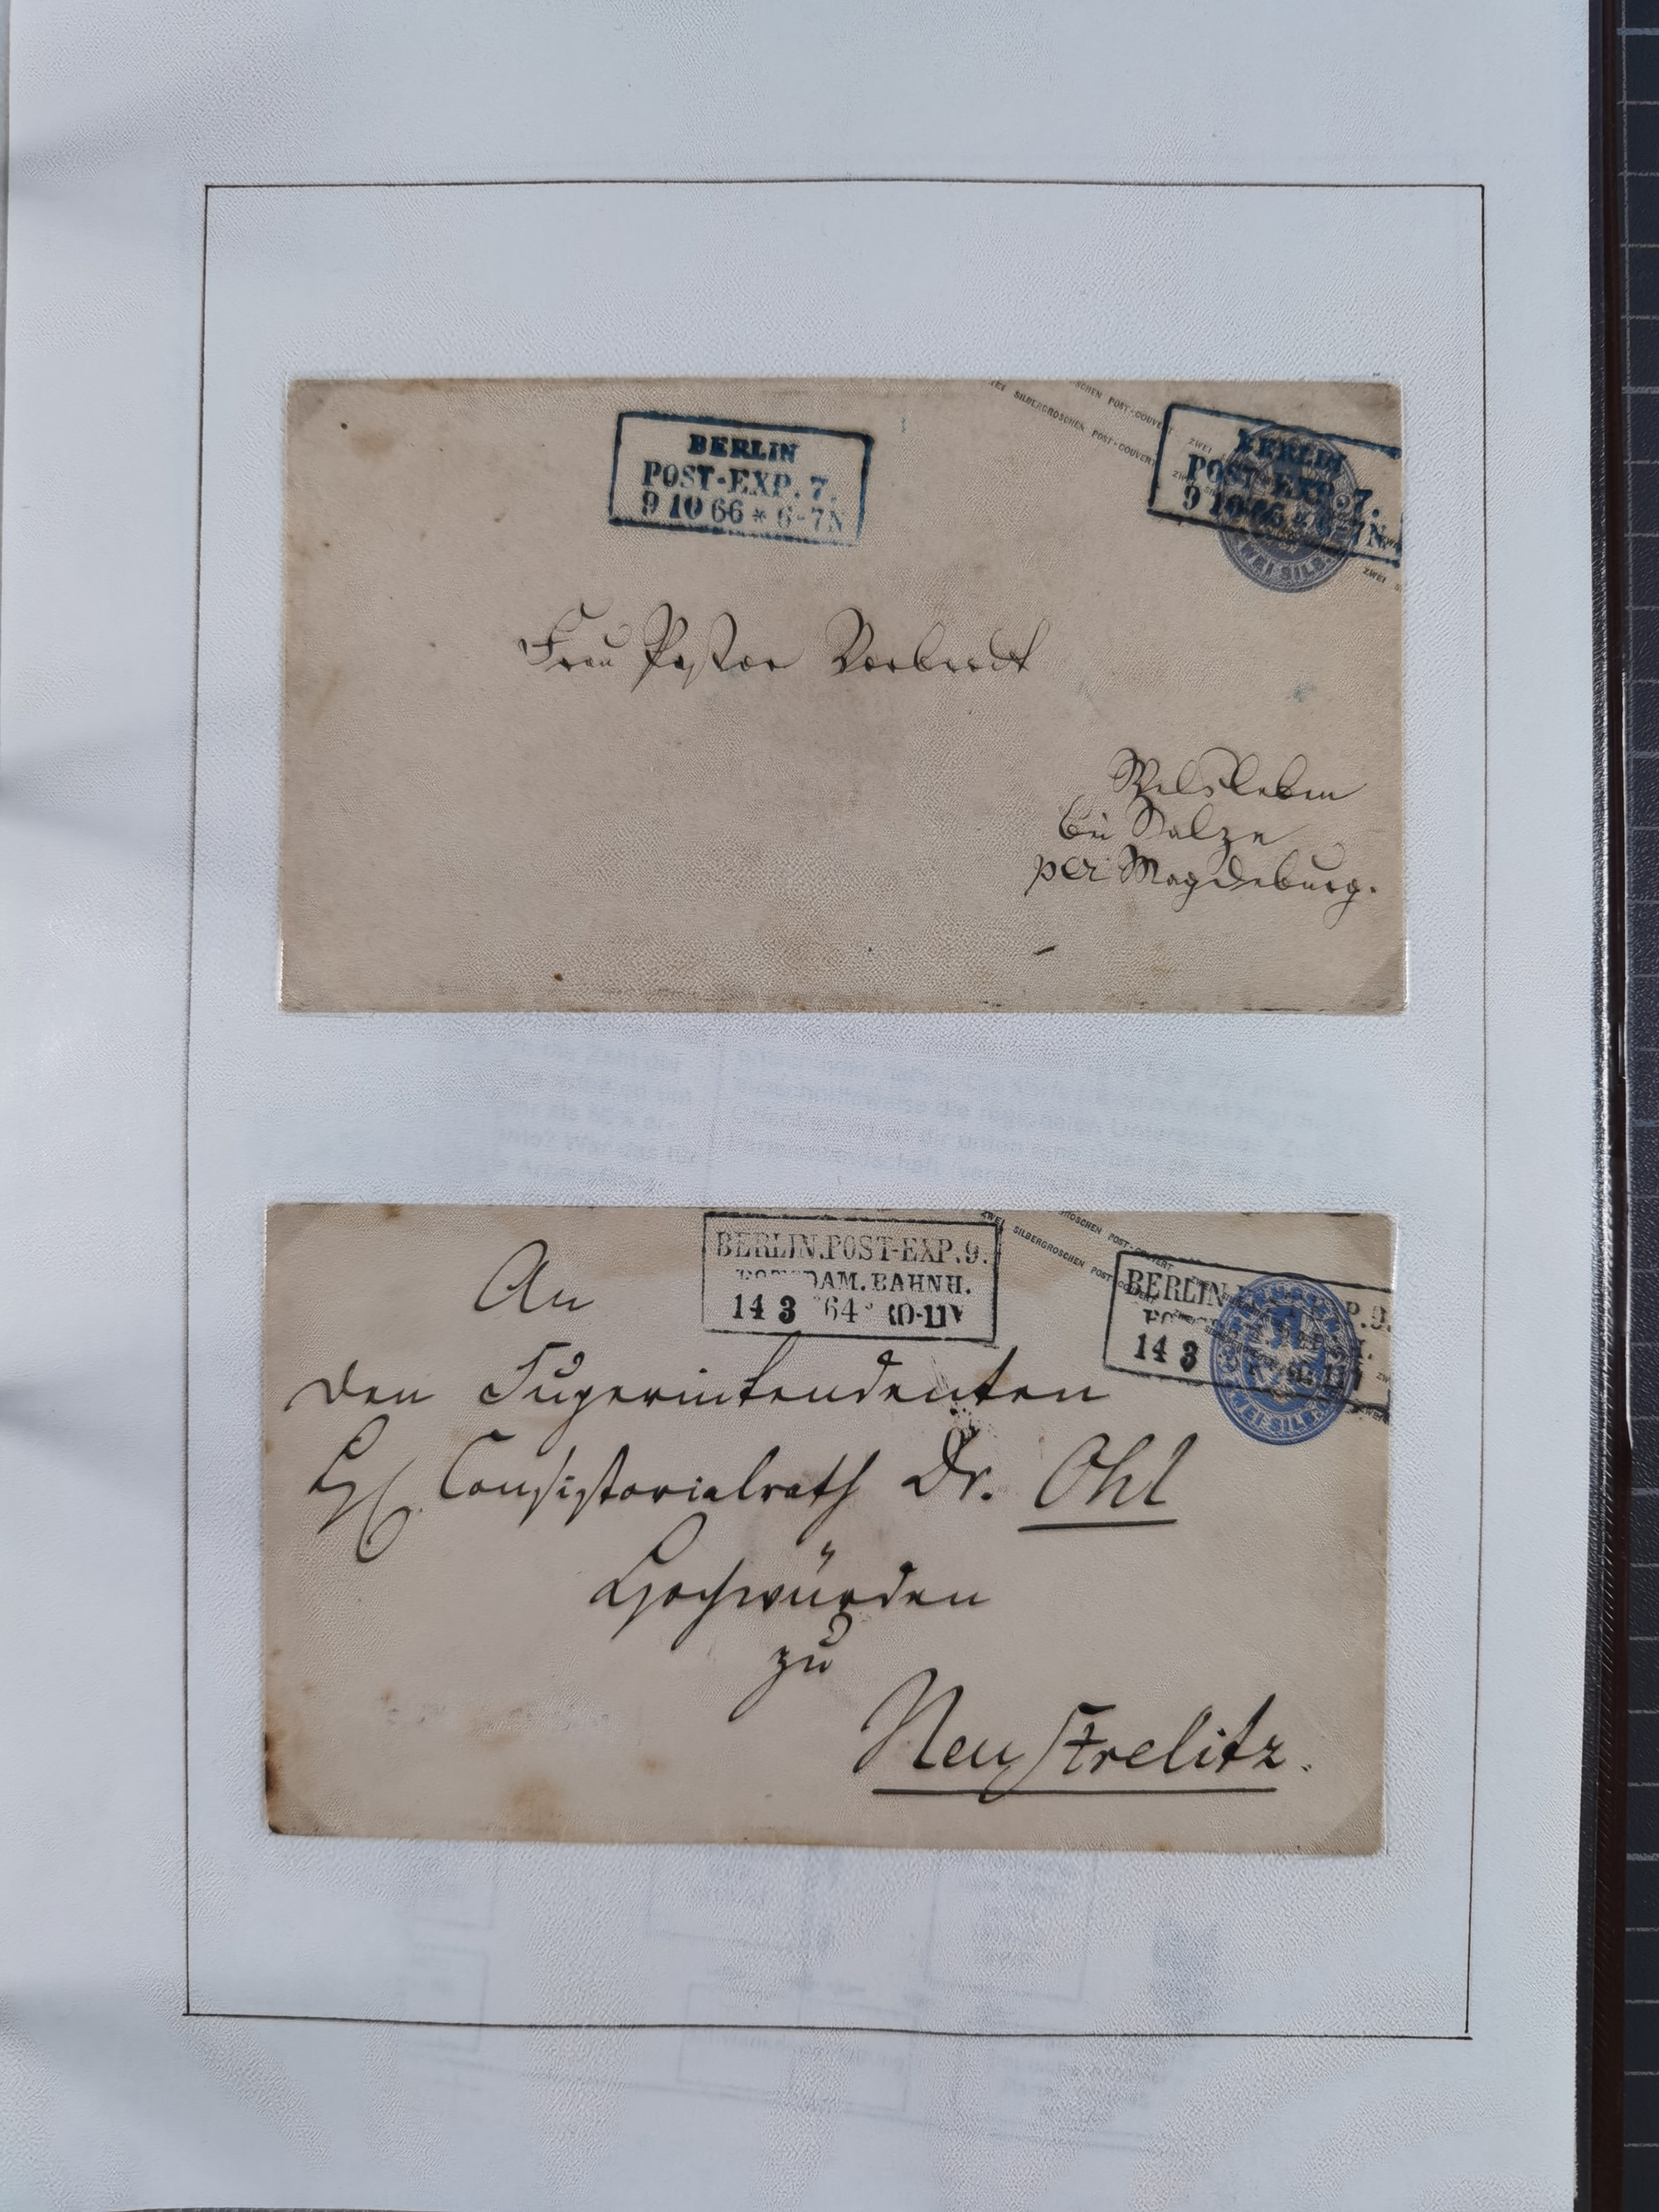 BERLIN
POST-EXP. 7.
9 10 66 * 6-7N
SCHEN POST-COUVERT ZWEI
ZWEI SILBERGROSCHEN POST-COUVERT
BERLIN
POST-EXP. 7.
9 10 66 * 6-7N
ZWEI SILB.
ZWEI
Frau Pastor
bei Salze
per Magdeburg.
BERLIN.POST-EXP.9.
POTSDAM.BAHNH.
14 3 64 * 10-11V
GROSCHEN POST-COUVERT
ZWEI SILBERGROSCHEN POST
BERLIN P.9.
14 3
ZWEI SILB.
An
den Superintendenten
H. Consistorialrath Dr. Ohl
Hochwürden
zu
Neustrelitz.